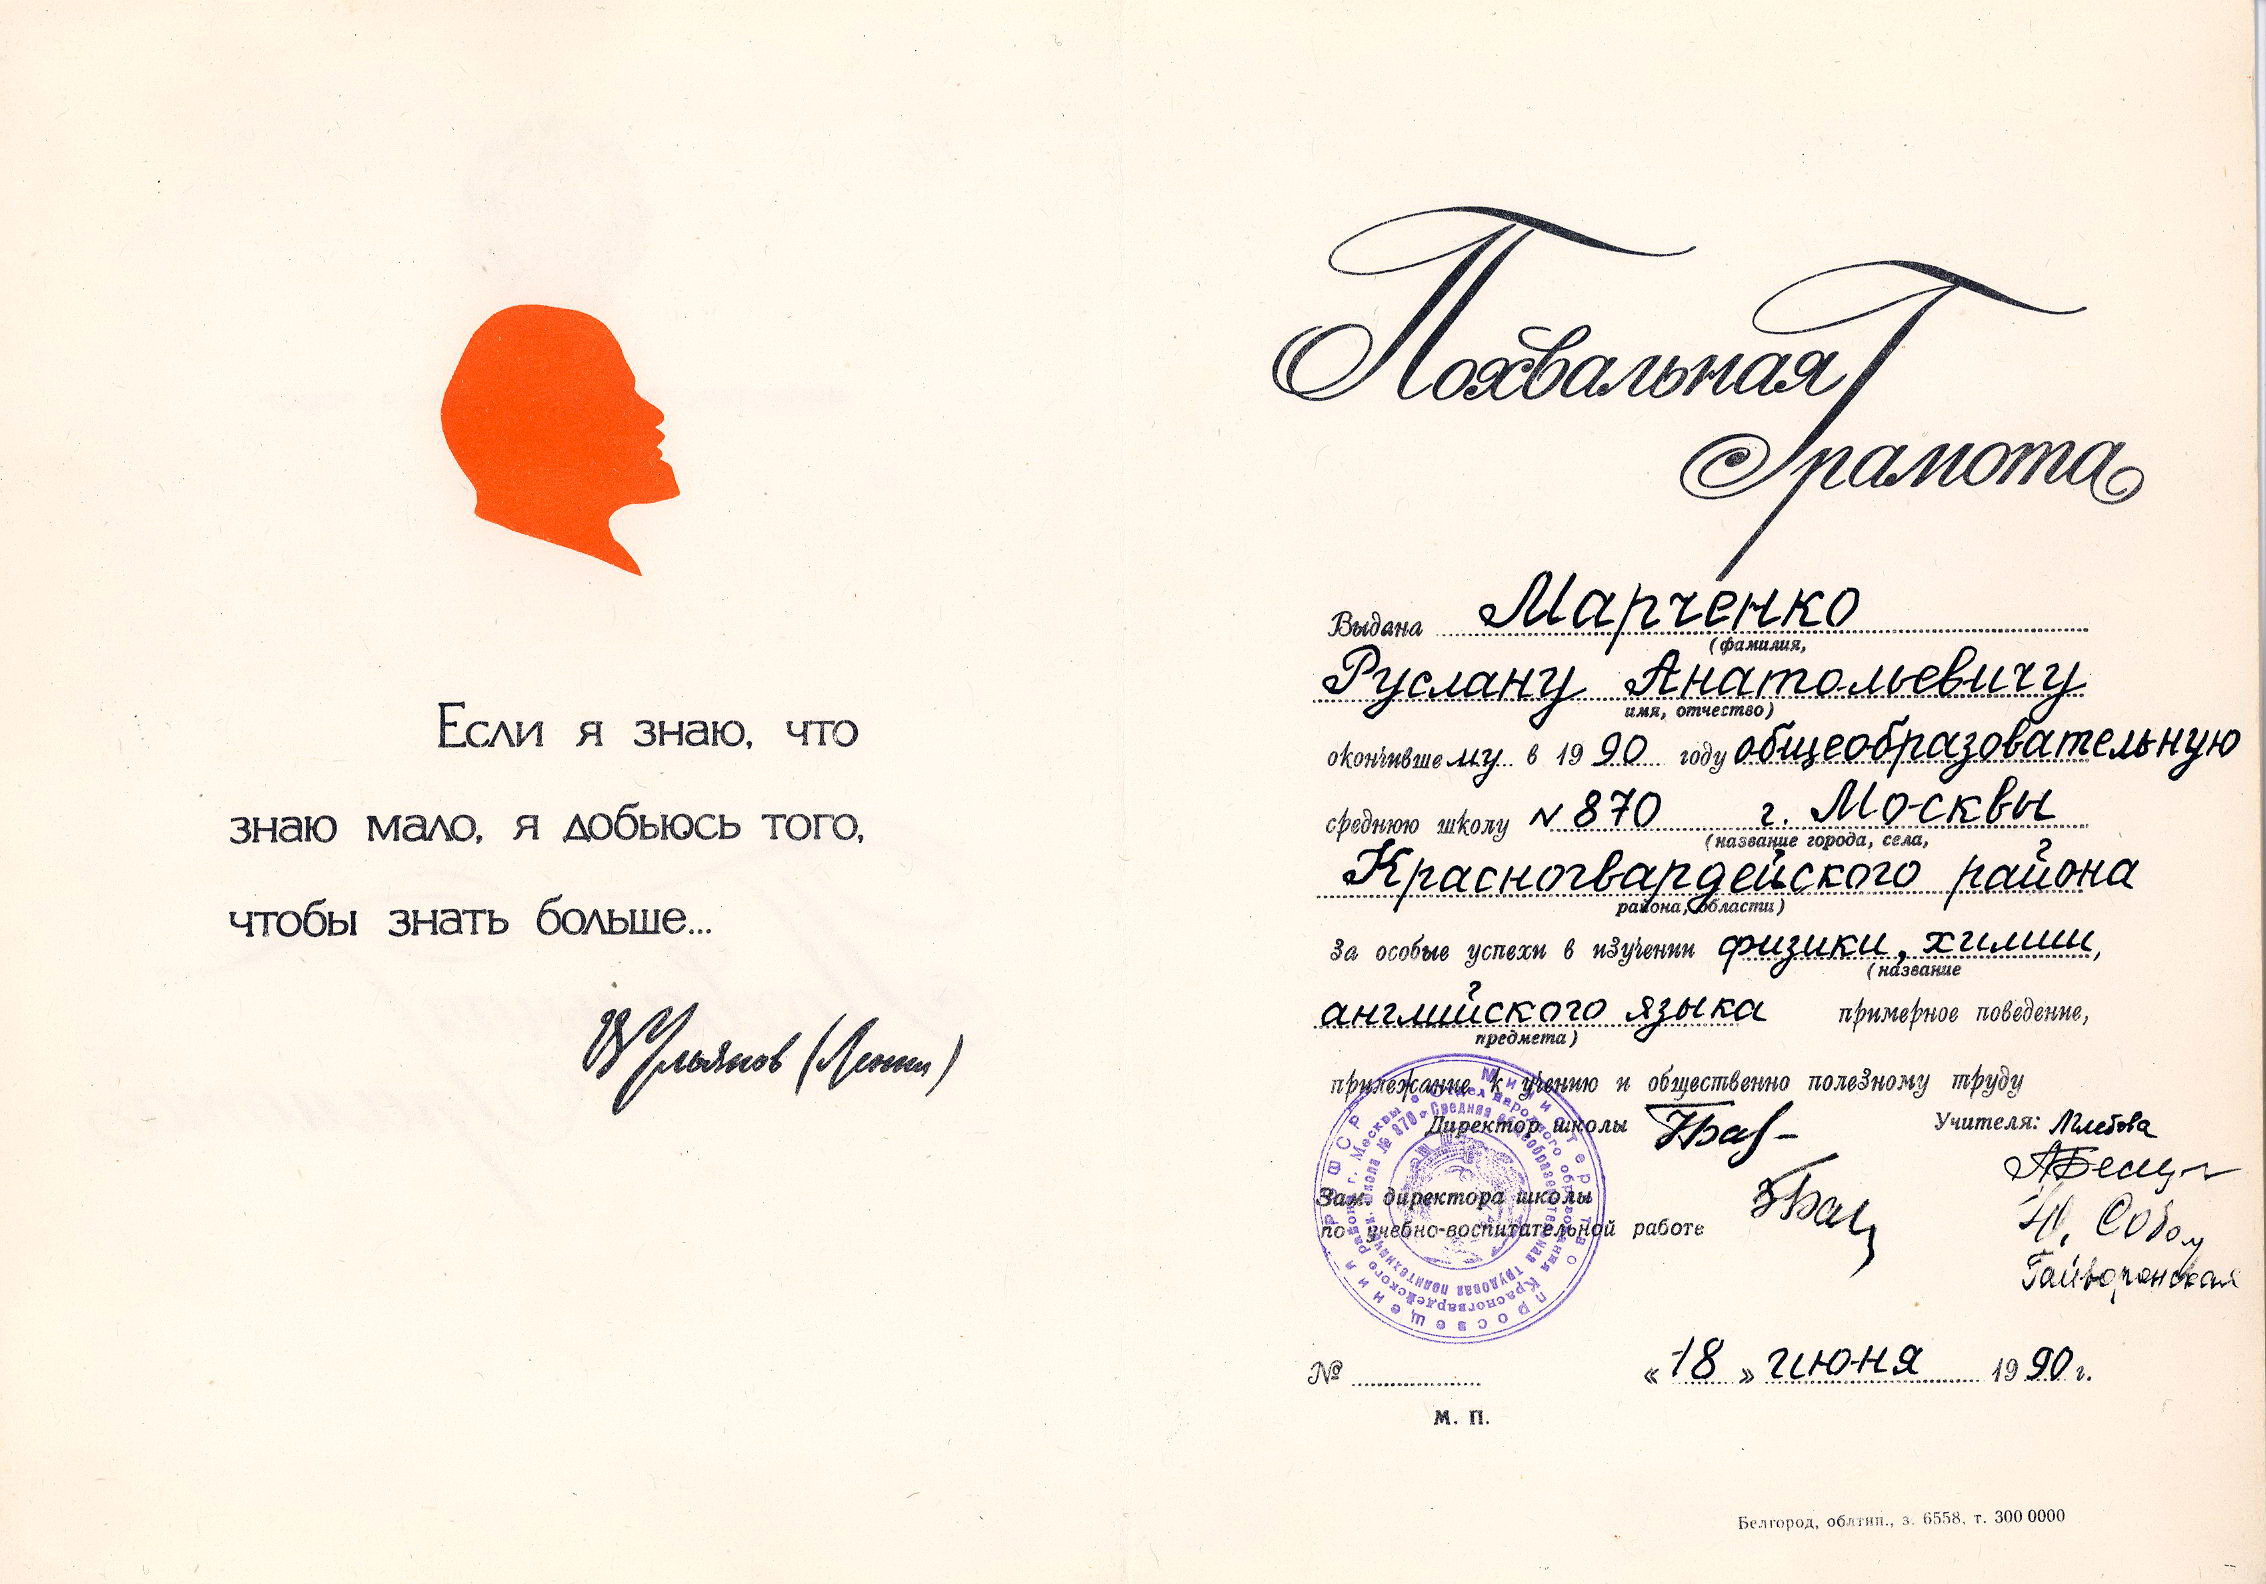 Если я знаю, что
знаю мало, я добьюсь того,
чтобы знать больше...
В Ульянов (Ленин)
Похвальная
Грамота
Выдана Марченко
(фамилия,
Руслану Анатольевичу
имя, отчество)
окончившему в 1990 году общеобразовательную
среднюю школу N 870 г. Москвы
(название города, села,
Красногвардейского района
района, области)
за особые успехи в изучении физики, химии,
(название
английского языка примерное поведение,
предмета)
прилежание к учению и общественно полезному труду
Директор школы
Учителя:
Зам. директора школы
по учебно-воспитательной работе
Гайворонская
Министерство просвещения РСФСР
Отдел народного образования Красногвардейского района г. Москвы
Средняя общеобразовательная трудовая политехническ. школа № 870
№
«18» июня 1990 г.
М. П.
Белгород, облтип., з. 6558, т. 300 0000